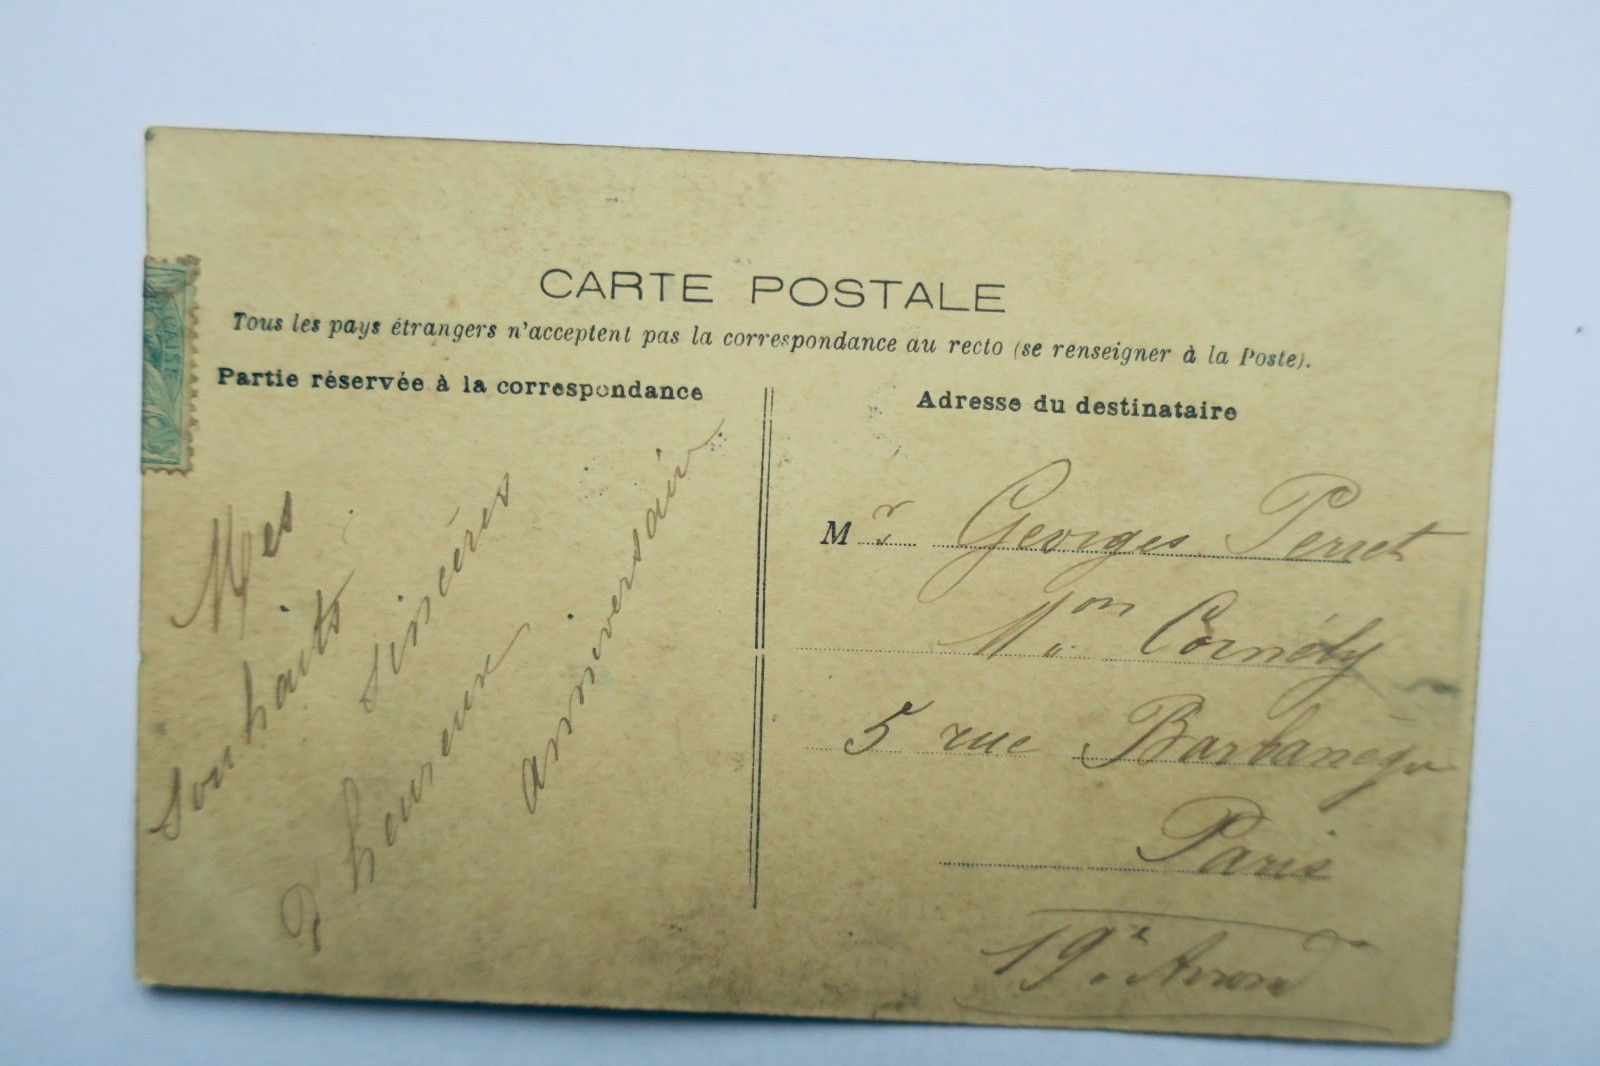 CARTE POSTALE
Tous les pays étrangers n'acceptent pas la correspondance au recto (se renseigner à la Poste).
Partie réservée à la correspondance
Mes
souhaits sincères
d'heureux
anniversaire
Adresse du destinataire
Mr Georges Perret
Mon Cornély
5 rue Barbanègre
Paris
19e Arrond